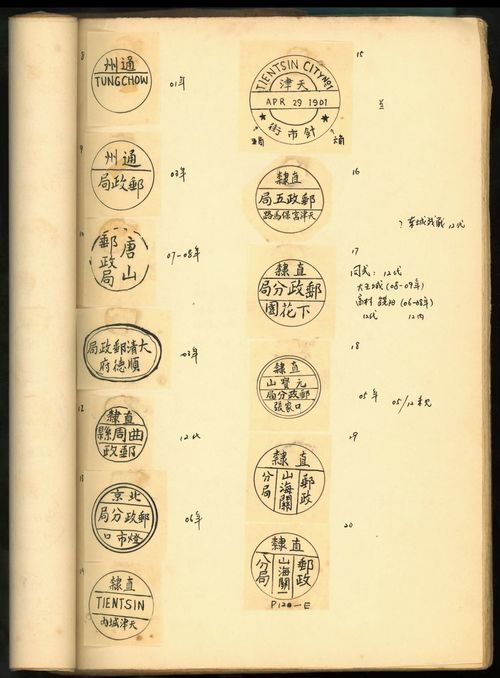 8
通州
TUNGCHOW
01年
9
通州
郵政局
03年
10
唐山
郵政局
07-08年
大清郵政局
順德府
03年
12
直隸
曲周縣
郵政
12代
13
北京
郵政分局
燈市口
06年
14
直隸
TIENTSIN
天津城內
15
TIENTSIN CITY No1
天津
APR 29 1901
針市街
16
直隸
郵政五局
天津宮保馬路
12代
17
直隸
郵政分局
下花園
同式: 12代
大王城 (08-09年)
(06-08年)
12代 12内
18
直隸
元寶山
郵政分局
張家口
05年 05/12
19
直隸
郵政
山海關
分局
20
直隸
郵政
山海關一
分局
P120-E